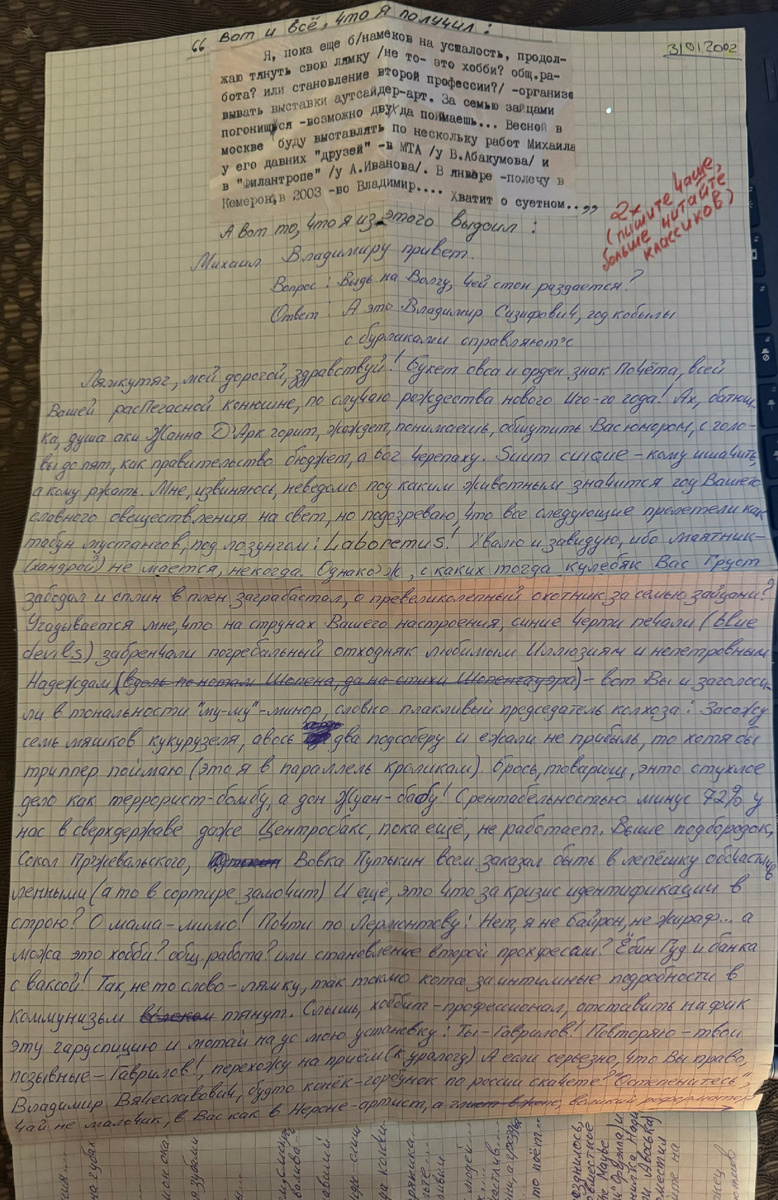 “ Вот и всё, что я получил:
31 01 2002
Я, пока еще б/намеков на усталость, продол-
жаю тянуть свою лямку /не то- это хобби? общ.ра-
бота? или становление второй профессии?/ -организо
вывать выставки аутсайдер-арт. За семью зайцами
погонишься -возможно двух да поймаешь... Весной в
москве буду выставлять по нескольку работ Михаила
у его давних "друзей" -в МТА /у В.Абакумова/ и
в "Филантропе" /у А.Иванова/. В январе -полечу в
Кемерон, в 2003 -во Владимир.... Хватит о суетном..,,
2х
(пишите чаще,
больше читайте
классиков)
А вот то, что я из этого выдоил:
Михаил Владимиру привет.
Вопрос: Выдь на Волгу, чей стон раздается?
Ответ: А это Владимир Сизифович, год кобылы
с бурлаками справляют'с
Лямкутяг, мой дорогой, здравствуй! Букет овса и орден знак Почёта, всей
Вашей расПегасной Конюшне, по случаю рождества нового Иго-го года! Ах, батюш-
ка, душа аки Жанна Д'Арк горит, жаждет, понимаешь, общутить Вас юмором, с голо-
вы до пят, как правительство бюджет, а бог черепаху. Suum cuique - кому ишачить,
а кому ржать. Мне, извиняюсь, неведомо под каким животным значится год Вашего
славного овеществления на свет, но подозреваю, что все следующие пролетели как
табун мустангов, под лозунгом: Laboremus! Хвалю и завидую, ибо маятник-
(хандрой) не мается, некогда. Однако ж, с каких тогда кулебяк Вас Груст
забодал и сплин в плен заграбастал, о превеликолепный охотник за семью зайцами?
Угадывается мне, что на струнах Вашего настроения, синие черти печали (blue
devils) забренчали погребальный отходняк любимым Иллюзиям и непетровным
Надеждам (вдоль по нотам Шопена, да на стихи Шопенгауэра) - вот Вы и заголоси-
ли в тональности "му-му"-минор, словно плаксивый председатель колхоза: Засажу
семь мяшков кукурузеля, авось два подсоберу и ежали не прибыль, то хотя бы
триппер поймаю (это я в параллель кроликам). Брось, товарищ, энто стухлое
дело как террорист-бомбу, а дон Жуан-бабу! С рентабельностью минус 72% у
нас в сверхдержаве даже Центробакс, пока ещё, не работает. Выше подбородок,
Сокол Пржевальского, Вовка Путькин всем заказал быть в лепёшку обсчастлив
ленными (а то в сортире замочит) И ещё, это что за кризис идентификации в
строю? О мама-мимо! Почти по Лермонтову: Нет, я не Байрон, не жираф... а
можа это хобби? общ. работа? или становление второй прохфессии? Ёбин Гуд и банка
с ваксой! Так, не то слово-лямку, так токмо кота за интимные подробности в
коммунизьм тянут. Слышь, хоббит-профессионал, отставить нафик
эту гаруспицию и мотай на ус мою установку: Ты-Гаврилов! Повторяю-твои
позывные-Гаврилов!, перехожу на приём (к уралогу) А если серьезно, что Вы право,
Владимир Вячеславович, будто конёк-горбунок по россии скачете? "Остепенитесь",
чай не мальчик, в Вас как в Нероне-артист,